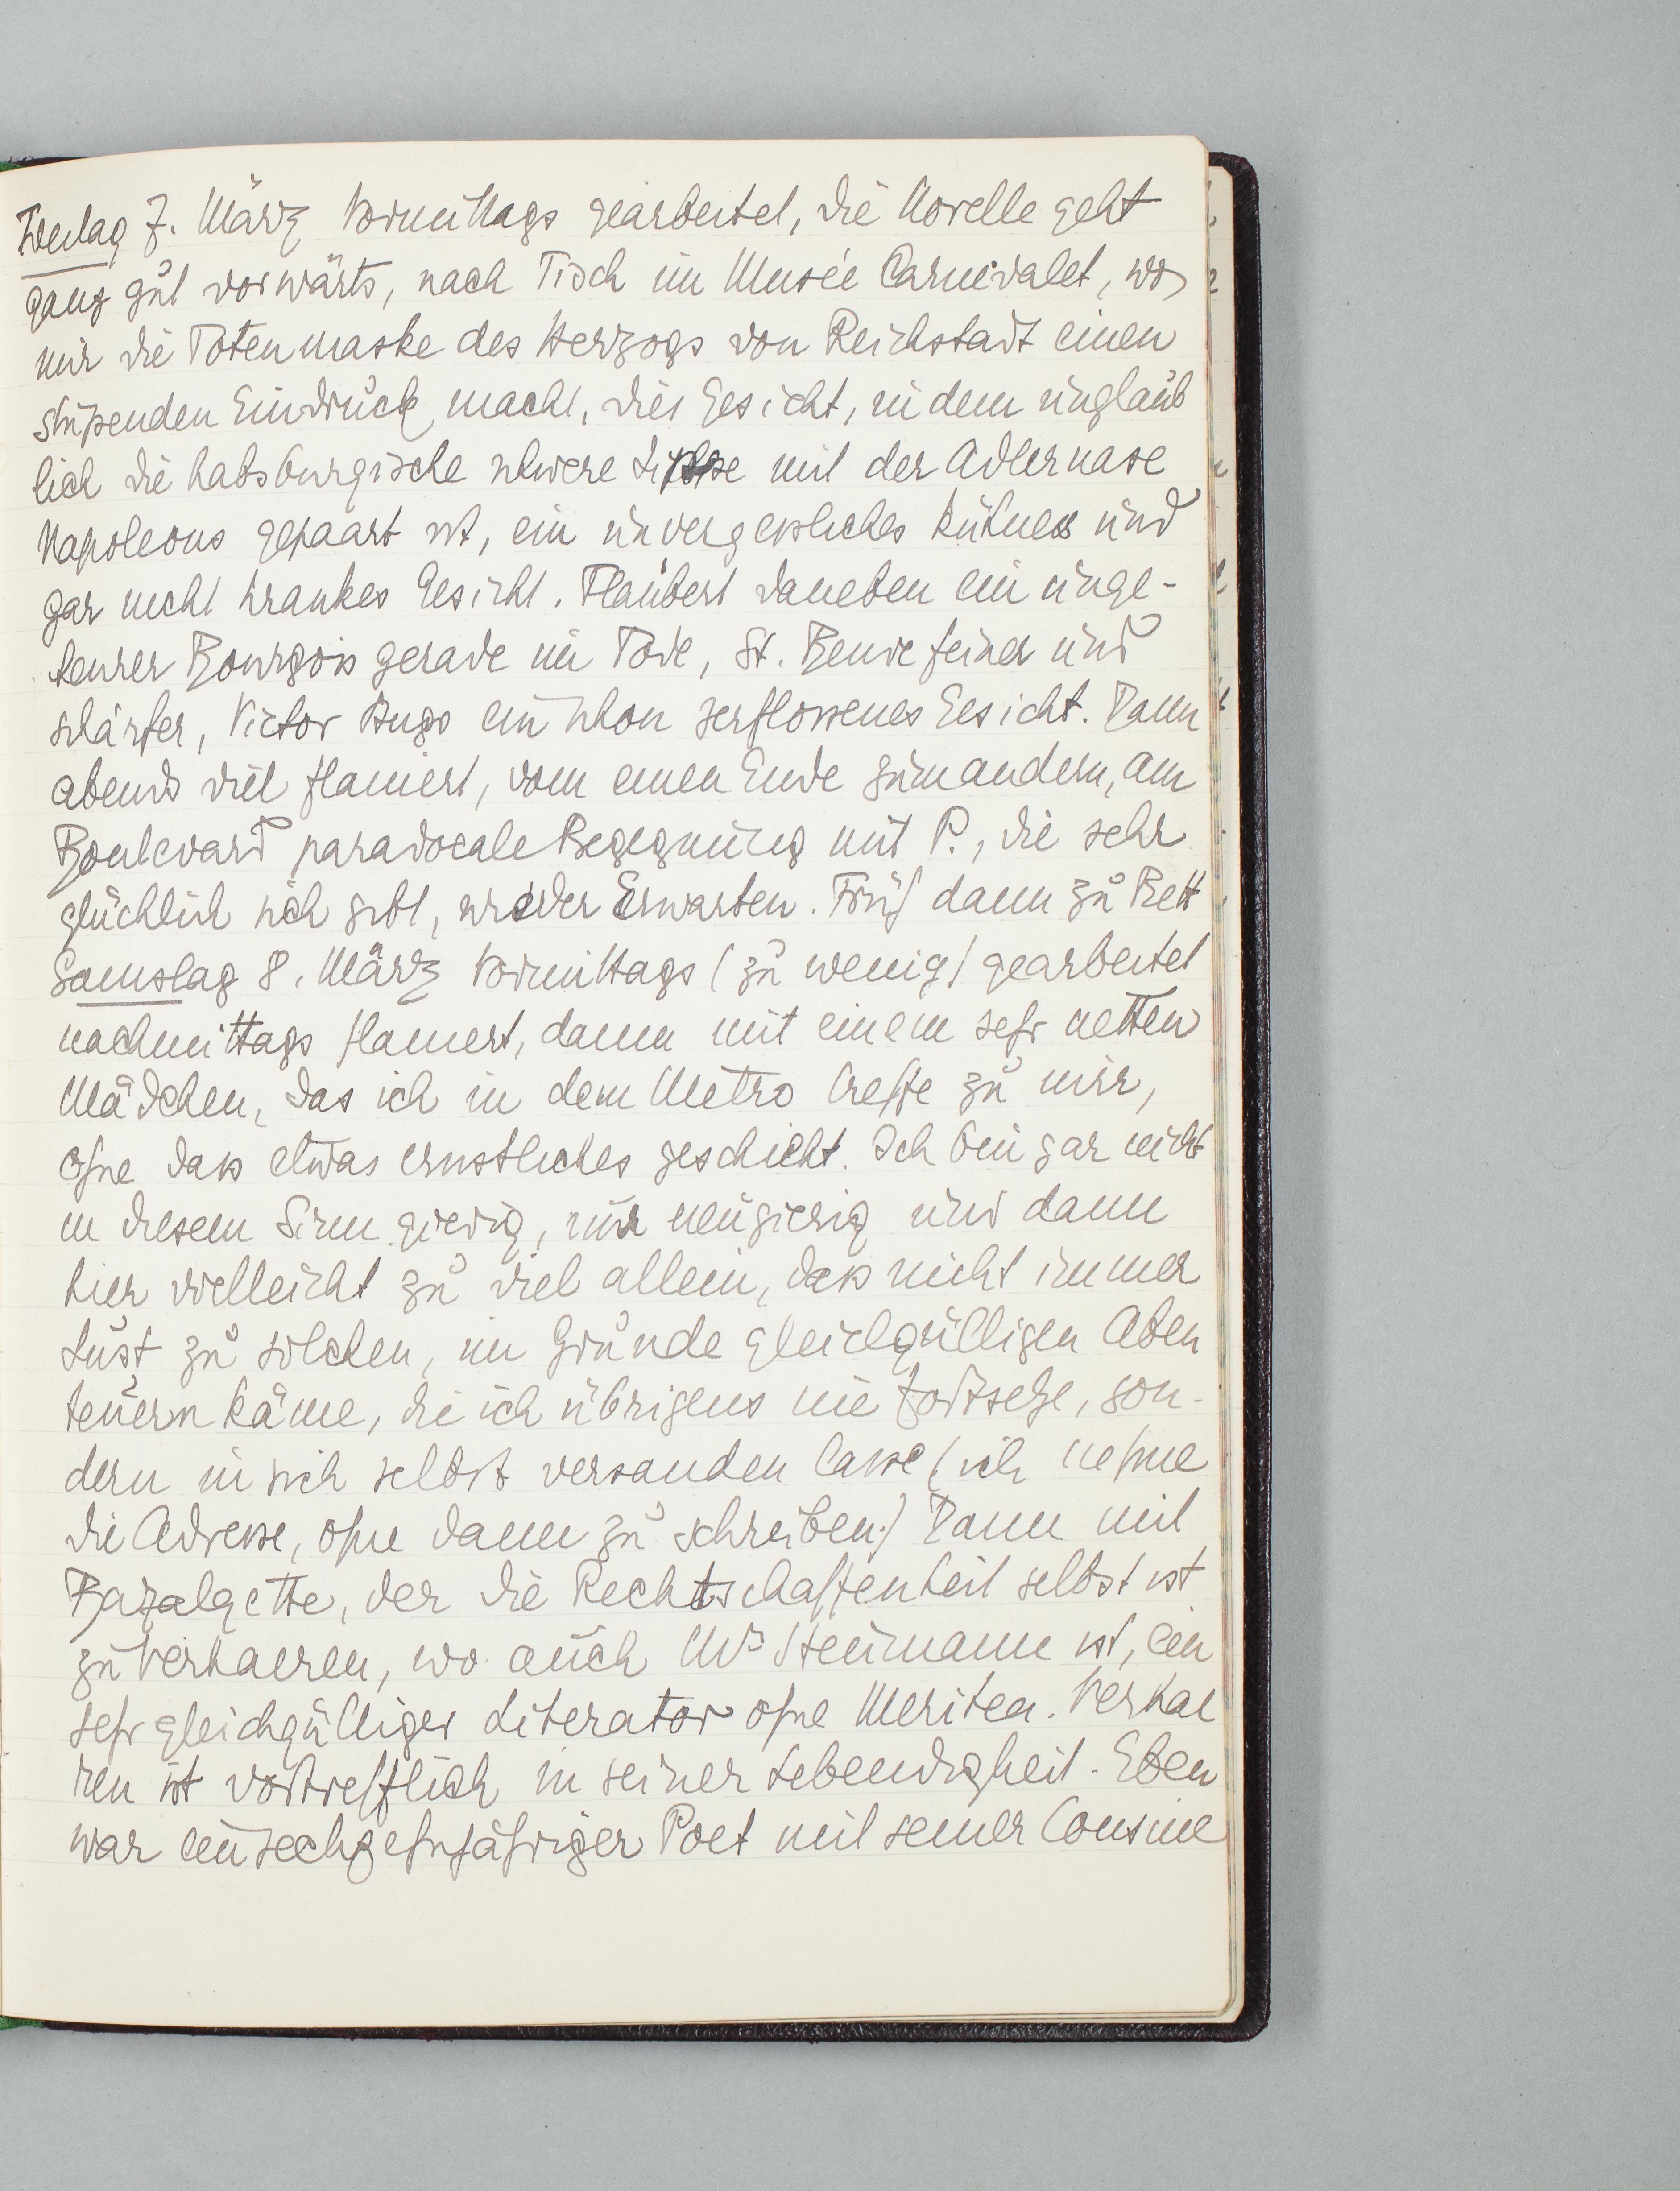 Freitag 7. März Vormittags gearbeitet, die Novelle geht
ganz gut vorwärts, nach Tisch im Musée Carnevalet, wo
mir die Totenmaske des Herzogs von Reichstadt einen
stupenden Eindruck macht, dies Gesicht, in dem unglaub
lich die habsburgische schwere Lippe mit der Adlernase
Napoleons gepaart ist, ein unvergessliches kühnes und
gar nicht krankes Gesicht. Flaubert daneben ein unge-
heurer Bourgois gerade im Tode, St. Beuve feiner und
schärfer, Victor Hugo ein schon zerflossenes Gesicht. Dann
abends viel flaniert, vom einen Ende zum andern, am
Boulevard paradoxale Begegnung mit P., die sehr
glücklich sich gibt, wieder Erwarten. Früh dann zu Bett
Samstag 8. März Vormittags (zu wenig) gearbeitet
nachmittags flaniert, dann mit einem sehr netten
Mädchen, das ich in dem Metro treffe zu mir,
ohne dass etwas ernstliches geschieht. Ich bin gar nicht
in diesem Sinn gierig, nur neugierig und dann
hier vielleicht zu viel allein, dass nicht immer
Lust zu solchen, im Grunde gleichgültigen Aben
teuern käme, die ich übrigens nie fortsetze, son-
dern in sich selbst versanden lasse (ich nehme
die Adresse, ohne dann zu schreiben.) Dann mit
Bazalgette, der die Rechtschaffenheit selbst ist
zu Verhaeren, wo auch Mr Heumann ist, ein
sehr gleichgültiger Literator ohne Meriten. Verhae
ren ist vortrefflich in seiner Lebendigkeit. Eben
war ein sechzehnjähriger Poet mit seiner Cousine